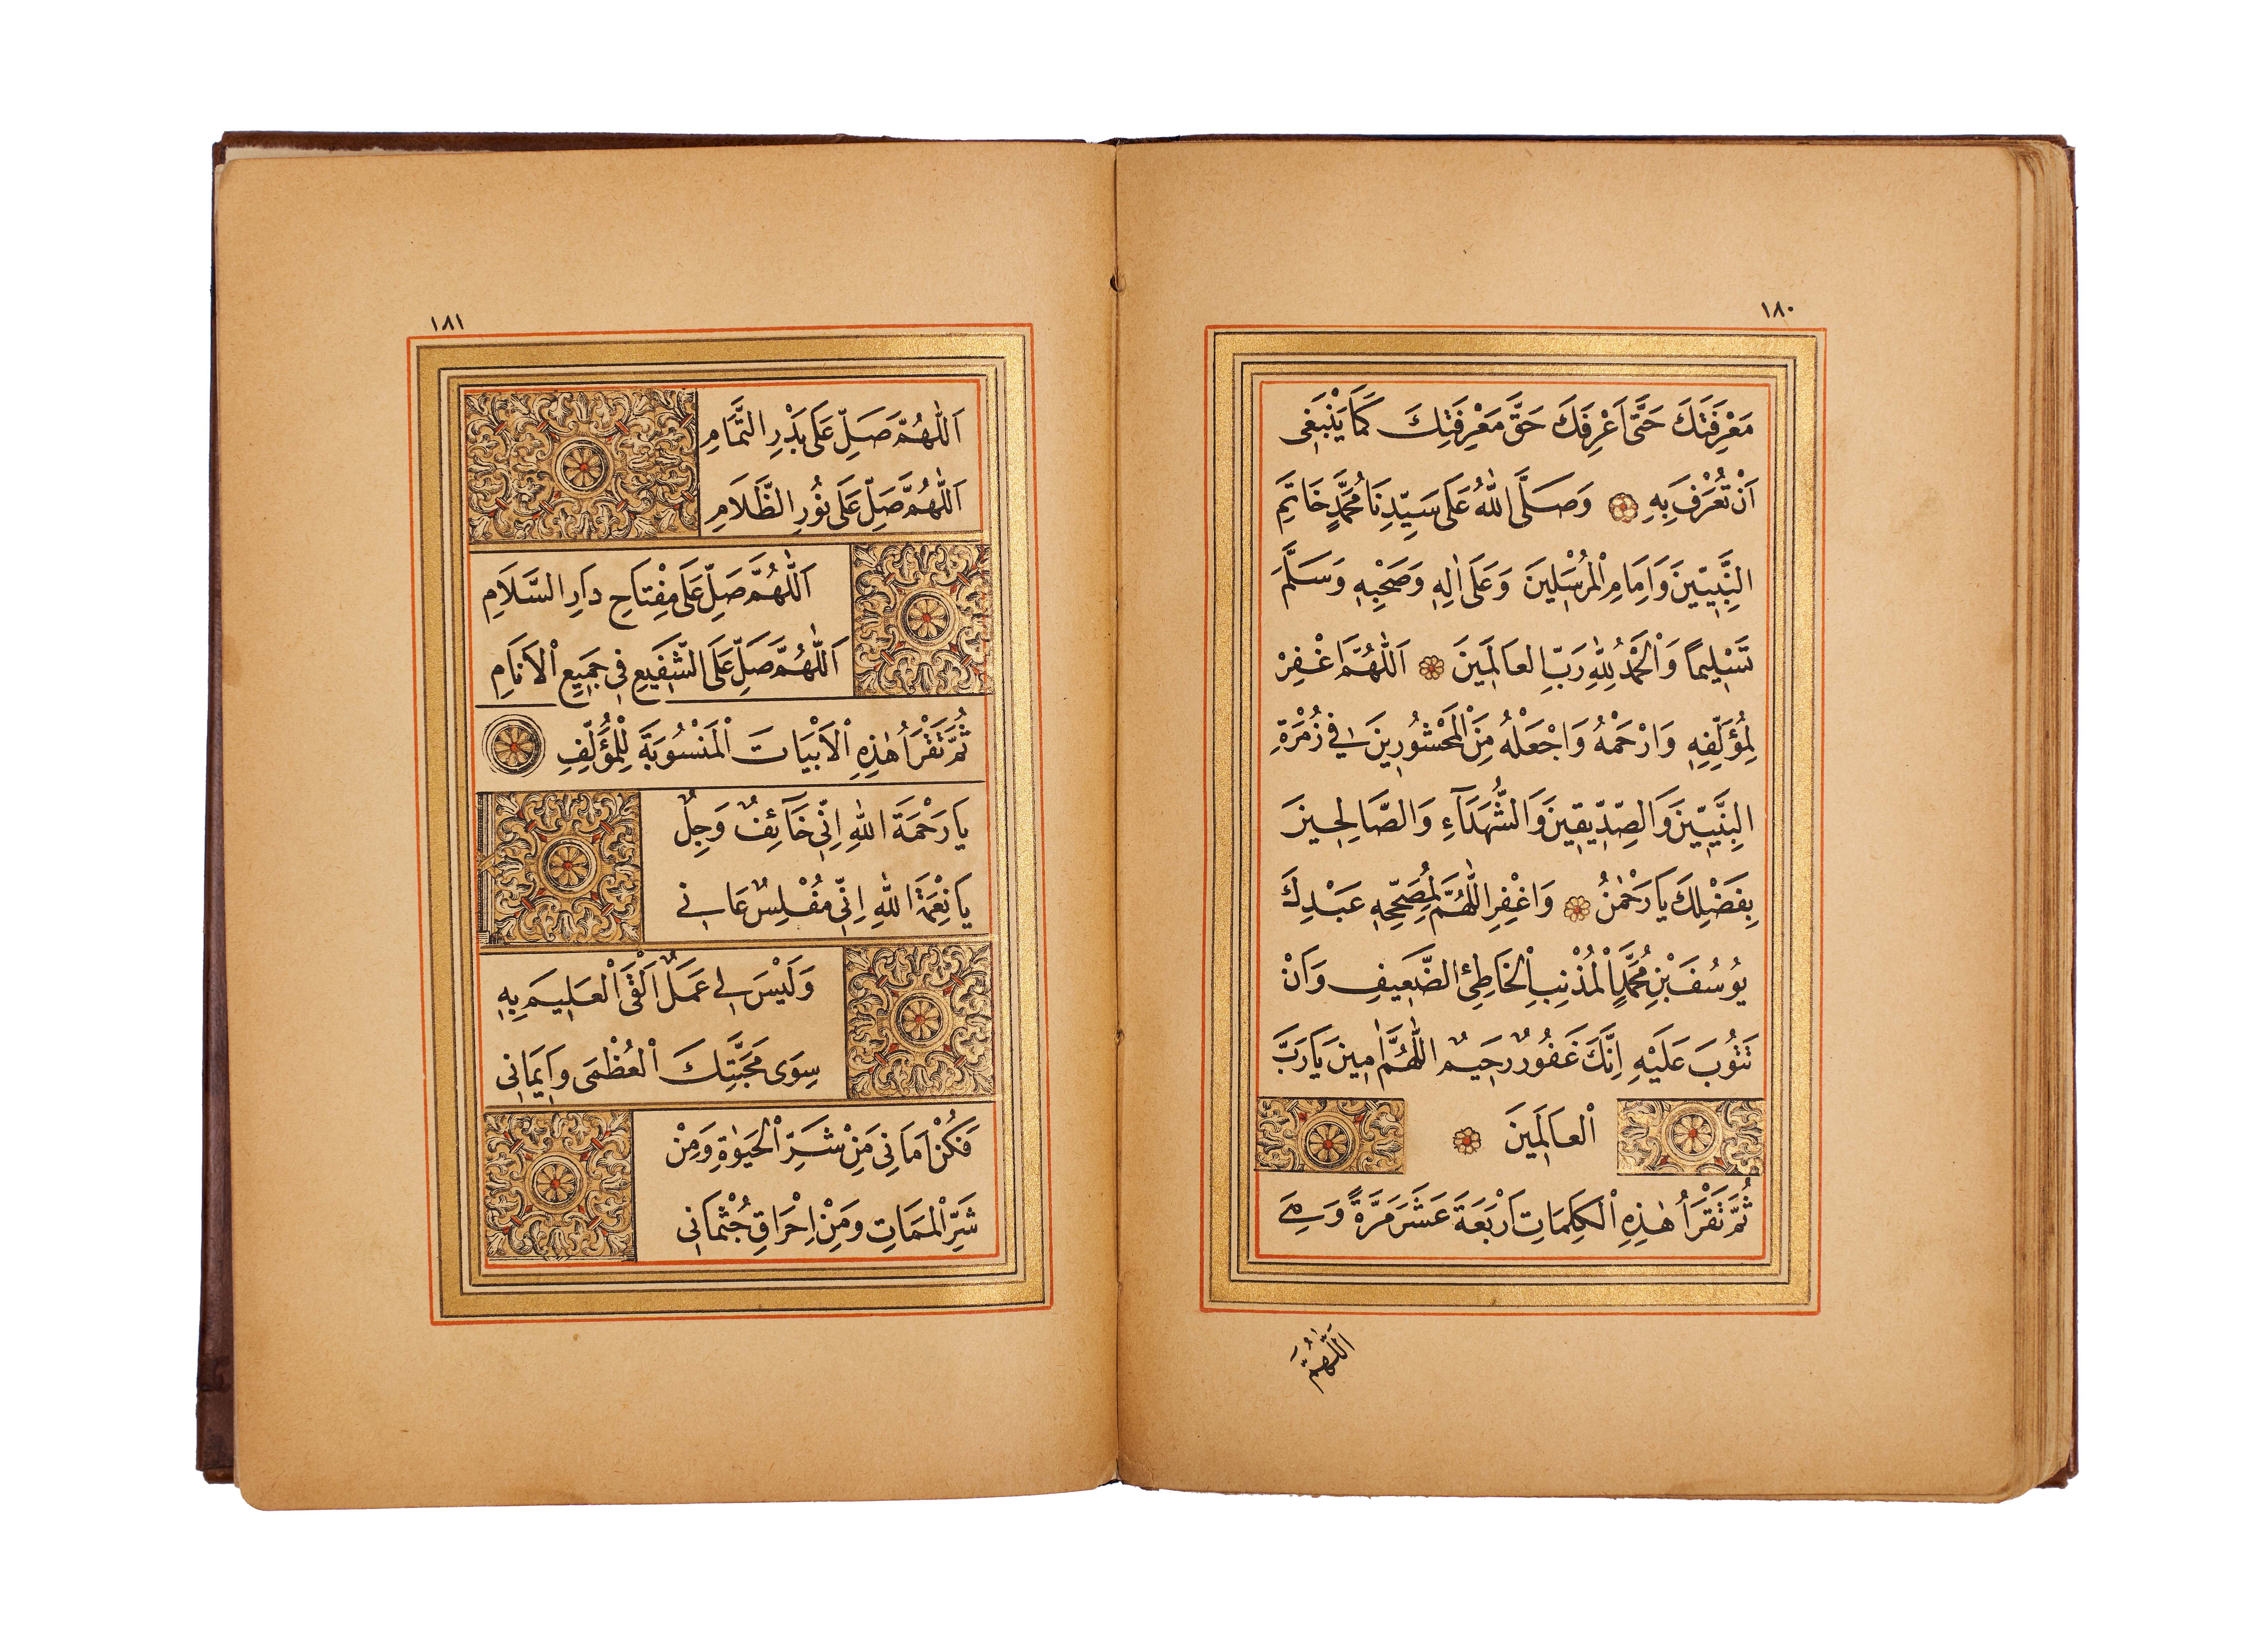 ١٨٠
مَعْرِفَتَكَ حَتّٰى اَعْرِفَكَ حَقَّ مَعْرِفَتِكَ كَمَا يَنْبَغِى
اَنْ تُعْرَفَ بِهِ وَصَلَّى اللّٰهُ عَلَى سَيِّدِنَا مُحَمَّدٍ خَاتِمِ
النَّبِيّينَ وَاِمَامِ الْمُرْسَلِينَ وَعَلَى اٰلِهِ وَصَحْبِهِ وَسَلَّمَ
تَسْلِيمًا وَالْحَمْدُ لِلّٰهِ رَبِّ العَالَمِينَ اَللّٰهُمَّ اغْفِرْ
لِمُؤَلِّفِهِ وَارْحَمْهُ وَاجْعَلْهُ مِنَ الْمَحْشُورِينَ فِى زُمْرَةِ
النَّبِيّينَ وَالصِّدِّيقِينَ وَالشُّهَدَآءِ وَالصَّالِحِينَ
بِفَضْلِكَ يَا رَحْمٰنُ وَاغْفِرِ اللّٰهُمَّ لِمُصَحِّحِهِ عَبْدِكَ
يُوسُفَ بْنِ مُحَمَّدٍ الْمُذْنِبِ الْخَاطِئِ الضَّعِيفِ وَاَنْ
تَتُوبَ عَلَيْهِ اِنَّكَ غَفُورٌ رَحِيمٌ اللّٰهُمَّ اٰمِينَ يَا رَبَّ
الْعَالَمِينَ
ثُمَّ تَقْرَأُ هٰذِهِ الْكَلِمَاتِ اَرْبَعَةَ عَشَرَ مَرَّةً وَهِىَ
اَللّٰهُمَّ
١٨١
اَللّٰهُمَّ صَلِّ عَلَى بَدْرِ التَّمَامِ
اَللّٰهُمَّ صَلِّ عَلَى نُورِ الظَّلَامِ
اَللّٰهُمَّ صَلِّ عَلَى مِفْتَاحِ دَارِ السَّلَامِ
اَللّٰهُمَّ صَلِّ عَلَى الشَّفِيعِ فِى جَمِيعِ الْاَنَامِ
ثُمَّ تَقْرَأُ هٰذِهِ الْاَبْيَاتَ الْمَنْسُوبَةَ لِلْمُؤَلِّفِ
يَا رَحْمَةَ اللّٰهِ اِنِّى خَآئِفٌ وَجِلٌ
يَا نِعْمَةَ اللّٰهِ اِنِّى مُفْلِسٌ عَانِى
وَلَيْسَ لِى عَمَلٌ اَلْقَى الْعَلِيمَ بِهِ
سِوَى مَحَبَّتِكَ الْعُظْمَى وَاِيمَانِى
فَكُنْ اَمَانِى مِنْ شَرِّ الْحَيٰوةِ وَمِنْ
شَرِّ الْمَمَاتِ وَمِنْ اِحْرَاقِ جُثْمَانِى